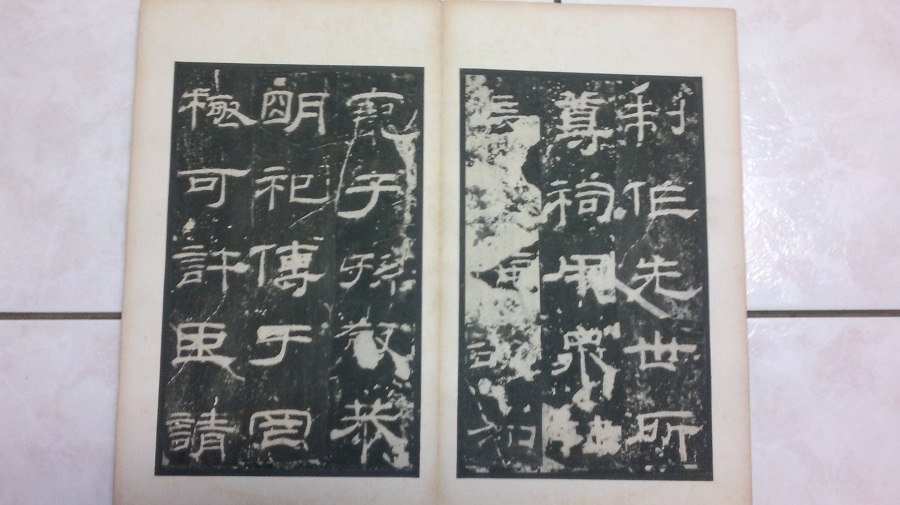 制作先世所
尊祠用眾牲
長
寵子孫敬恭
明祀傳于罔
極可許臣請